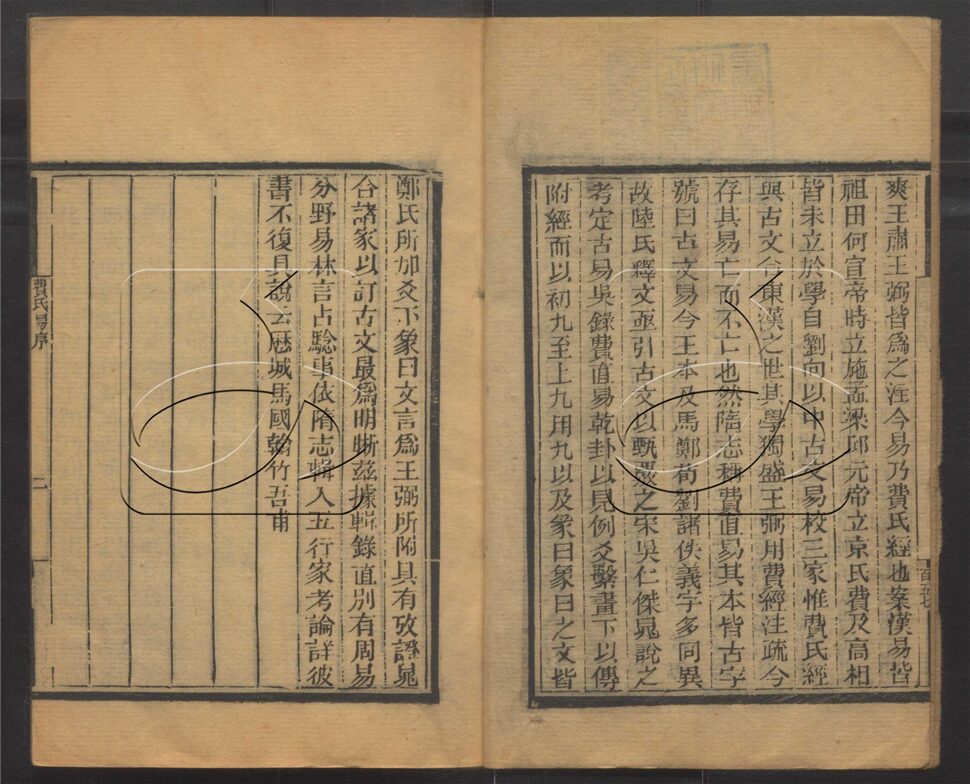 爽王肅王弼皆爲之注今易乃費氏經也案漢易皆
祖田何宣帝時立施孟梁邱元帝立京氏費及高相
皆未立於學自劉向以中古文易校三家惟費氏經
與古文合東漢之世其學獨盛王弼用費經注疏今
存其易亡而不亡也然隋志稱費直易其本皆古字
號曰古文易今王本及馬鄭荀劉諸佚義字多同異
故陸氏釋文亟引古文以甄張之宋吳仁傑晁說之
考定古易吳錄費直易乾卦以見例爻繫畫下以傳
附經而以初九至上九用九以及彖曰象曰之文皆
鄭氏所加爻下象曰文言爲王弼所附具有攷證晁
合諸家以訂古文最爲明晰兹據輯錄直別有周易
分野易林言占驗事依隋志輯入五行家考論詳彼
書不復具說云歷城馬國翰竹吾甫
費氏易序
二
百五七